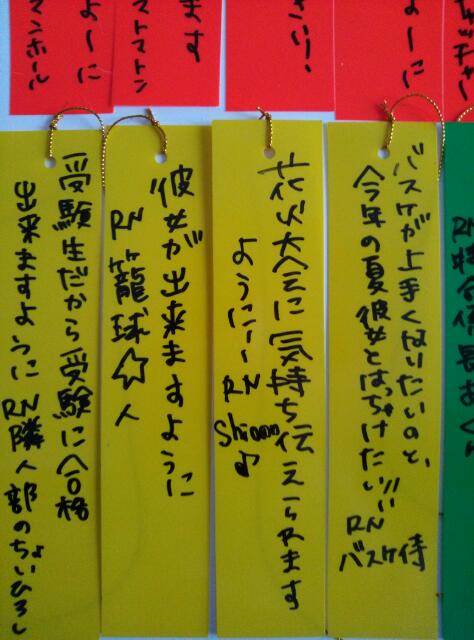 よーに
さい!
ます
ストマトン
よーに
マンホール
バスケが上手くなりたいのと、
今年の夏彼女とはっちゃけたい!!!
RN
バスケ侍
花火大会に気持ち伝えられます
ようにー RN
♪
彼女が出来ますように
RN 籠球☆人
受験生だから受験に合格
出来ますように RN隣人部のちょいひろし